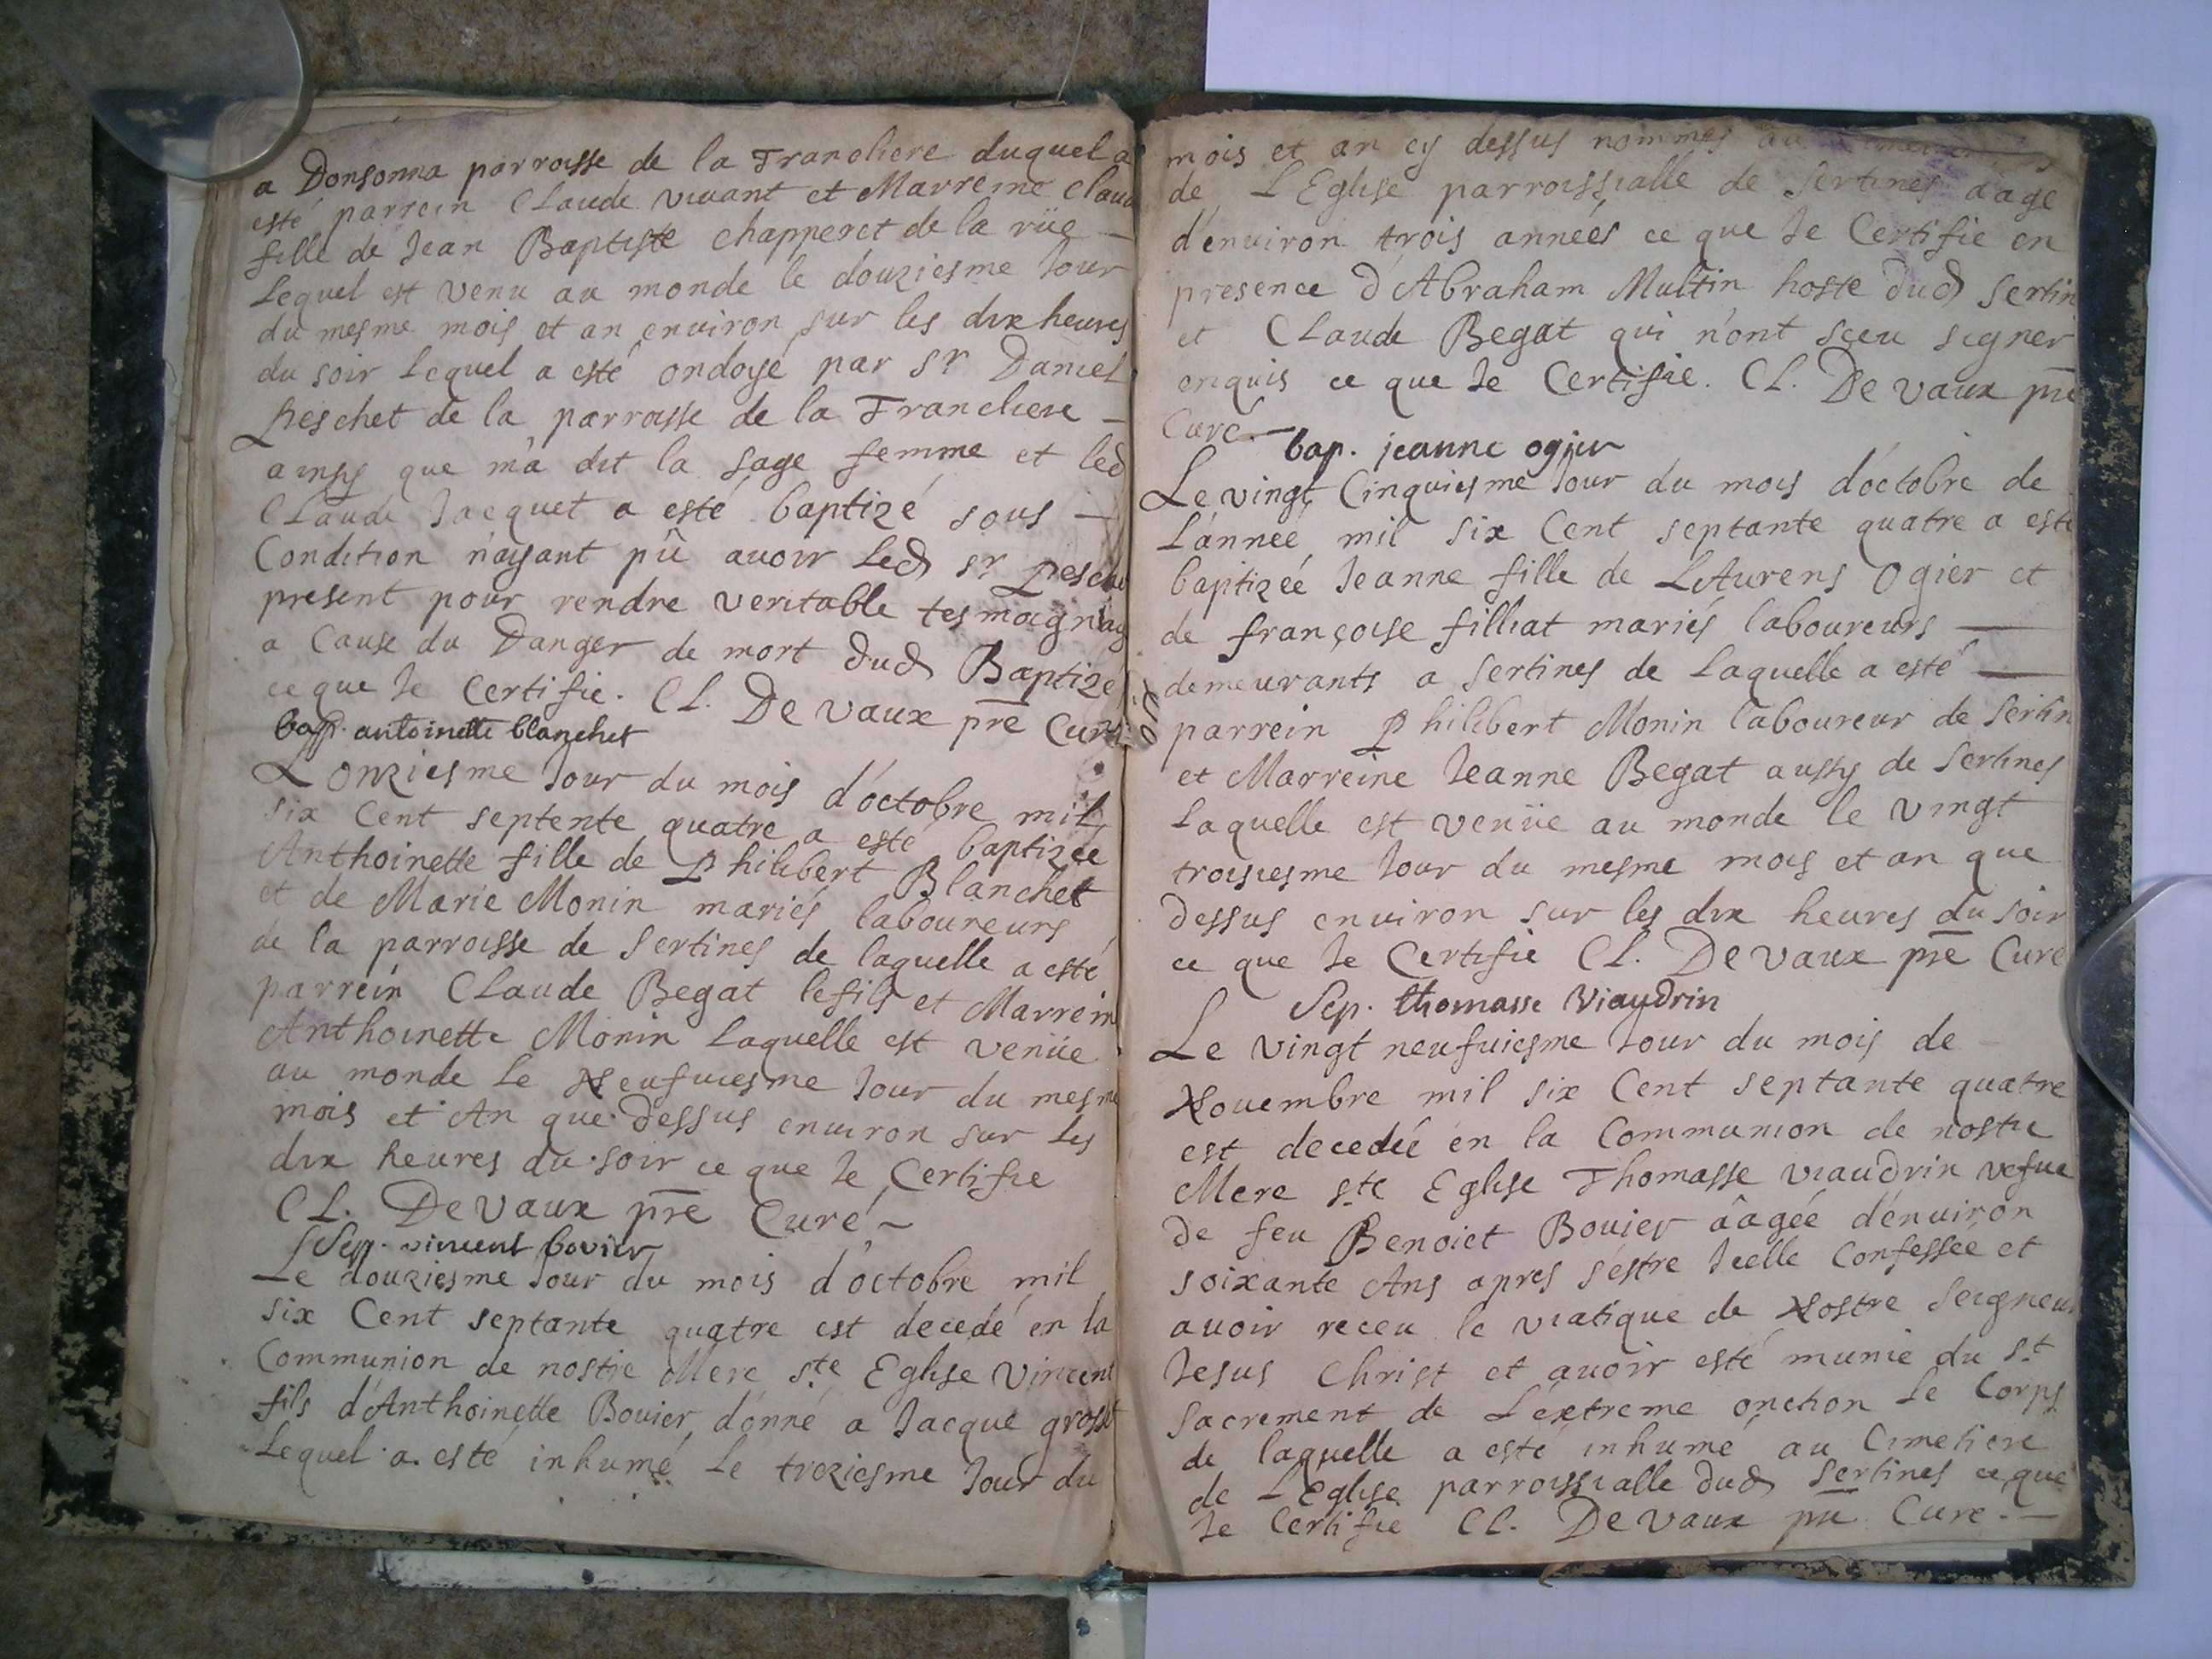 a Donsonna parroisse de la Francliere duquel a
esté parrein Claude vivant et Marreine Claud
fille de Jean Baptiste chapperet de la rüe —
Lequel est venu au monde le douziesme Jour
du mesme mois et an environ sur les dix heures
du soir Lequel a esté ondoyé par Sr Daniel
Peschet de la parroisse de la Francliere —
ainsy que m'a dit la sage femme et led
Claude Jacquet a esté baptizé sous —
Condition n'ayant pû avoir Led Sr Pesche
present pour rendre veritable tesmoignag
a Cause du Danger de mort dud Baptize
ce que Je Certifie. CL. De vaux pre Curé
bap. antoinette blanchet
L'onziesme Jour du mois d'octobre mil
six Cent septente quatre a esté baptizée
Anthoinette fille de Philibert Blanchet
et de Marie Monin mariés laboureurs
de la parroisse de Sertines de laquelle a esté
parrein Claude Begat le fils et Marrein
Anthoinette Monin Laquelle est venüe
au monde Le Neufviesme Jour du mesme
mois et An que dessus environ sur les
dix heures du soir ce que Je Certifie
CL. De vaux pre Curé ~
Sep. vincent bovier
Le douziesme Jour du mois d'octobre mil
six Cent septante quatre est decedé en la
Communion de nostre Mere Ste Eglise Vincent
fils d'Anthoinette Bouier, donné a Jacque grosset
Lequel a esté inhumé Le treziesme Jour du
mois et an cy dessus nommés au
de L'Eglise parroissialle de Sertines aage
d'environ trois années ce que Je Certifie en
presence d'Abraham Multin hoste dud Sertin
et Claude Begat qui n'ont sceu signer
enquis ce que Je Certifie. CL. De vaux pre
Curé —
bap. jeanne ogier
Le vingt Cinquiesme Jour du mois d'octobre de
L'année mil six Cent septante quatre a esté
baptizée Jeanne fille de LAurens Ogier et
de françoise filliat mariés laboureurs —
demeurants a Sertines de Laquelle a esté —
parrein Philibert Monin laboureur de Sertin
et Marreine Jeanne Begat aussy de Sertines
Laquelle est venüe au monde le vingt
troisiesme Jour du mesme mois et an que
dessus environ sur les dix heures du soir
ce que Je Certifie CL. De vaux pre Curé
Sep. thomasse Viaudrin
Le vingt neufviesme Jour du mois de
Novembre mil six Cent septante quatre
est decedée en la Communion de nostre
Mere Ste Eglise Thomasse viaudrin vefue
de feu Benoict Bouier âagée d'environ
soixante Ans apres s'estre Jcelle Confessée et
avoir receu le viatique de Nostre Seigneur
Jesus Christ et avoir esté munie du St
Sacrement de L'extreme onction Le Corps
de laquelle a esté inhumé au Cimetiere
de L'Eglise parroissialle dud Sertines ce que
Je Certifie CL. De vaux pre Curé. —